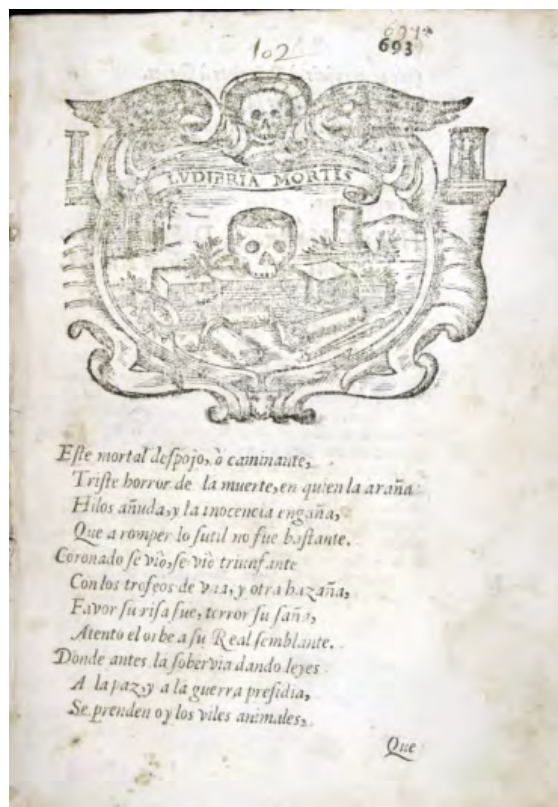 102
693
LVDIBRIA MORTIS
Este mortal despojo, ò caminante,
Triste horror de la muerte, en quien la araña
Hilos añuda, y la inocencia engaña,
Que a romper lo sutil no fue bastante.
Coronado se viò, se viò triunfante
Con los trofeos de vna, y otra hazaña,
Favor su risa fue, terror su saña,
Atento el orbe a su Real semblante.
Donde antes la sobervia dando leyes
A la paz, y a la guerra presidia,
Se prenden oy los viles animales,
Que